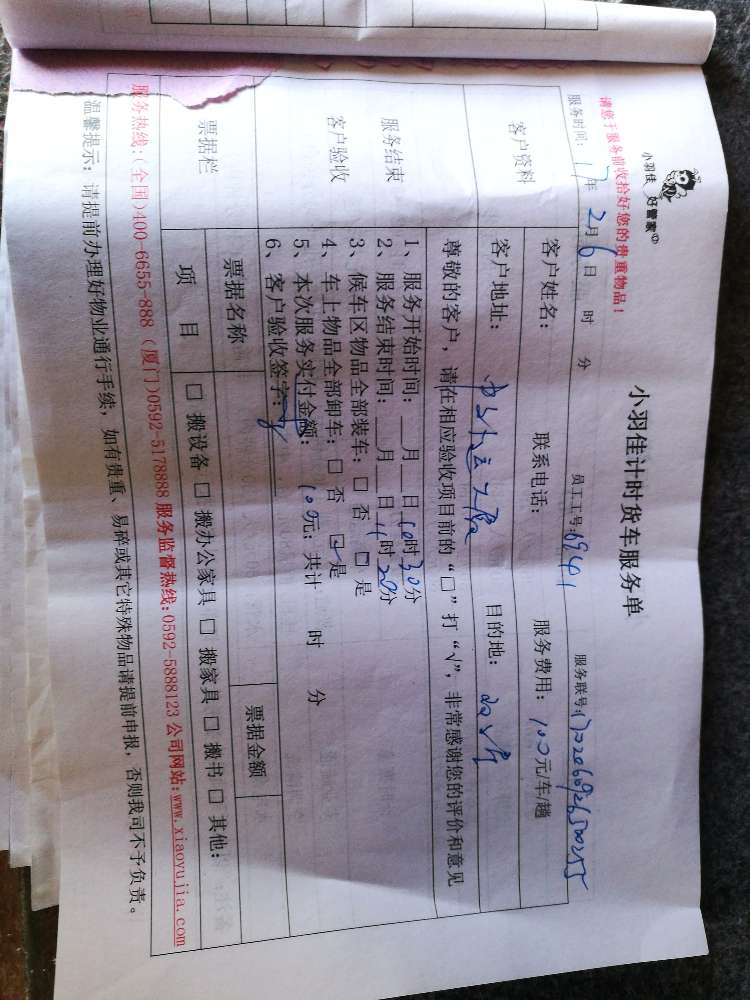 小羽佳 好管家
请您于服务前收拾好您的贵重物品！
小羽佳计时货车服务单
服务时间：17年2月6日 时 分 员工工号：6941 服务联号：
客户资料
客户姓名： 联系电话： 服务费用：100元/车/趟
客户地址： 目的地：
尊敬的客户，请在相应验收项目前的“□”打“√”，非常感谢您的评价和意见
服务结束
客户验收
1、服务开始时间：__月__日10时30分
2、服务结束时间：__月__日11时20分
3、候车区物品全部装车：□ 否 □ 是
4、车上物品全部卸车：□ 否 ☑ 是
5、本次服务实付金额：100元；共计 时 分
6、客户验收签字：
票据栏
票据名称 票据金额
项 目 □ 搬设备 □ 搬办公家具 □ 搬家具 □ 搬书 □ 其他：
服务热线：(全国)400-6655-888 (厦门)0592-5178888 服务监督热线：0592-5888123 公司网站：www.xiaoyujia.com
温馨提示：请提前办理好物业通行手续，如有贵重、易碎或其它特殊物品请提前申报，否则我司不予负责。